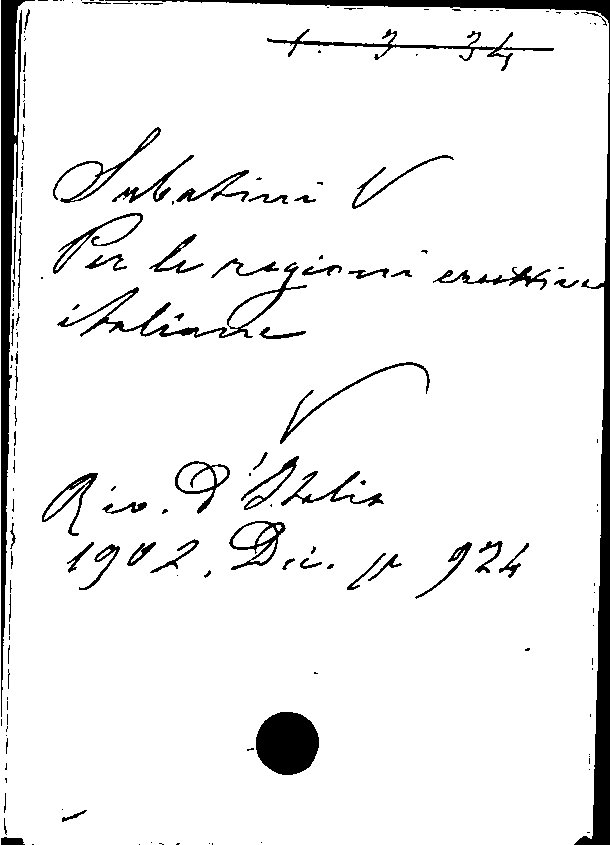 1. 3. 34
Sabatini V
Per le regioni eruttive
italiane
Riv. d'Italia
1902. Dic. p 924